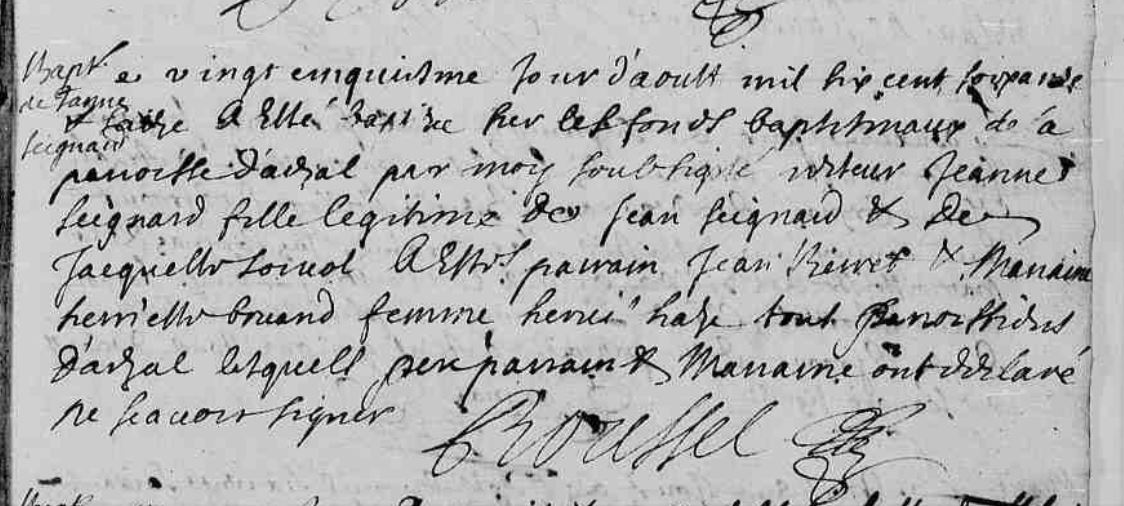 Bapt.
de Janne
Seignard
e vingt cinquisme Jour d'aoult mil six cent soixante
& saize A Esté baptizée sur les fonds baptismaux de la
paroisse d'arzal par moy soubsigné recteur Jeanne
Seignard fille legitime de Jean Seignard & de
Jacquette A Estés parrain Jean & Maraine
henriette bouard femme henri haze tous paroissiens
d'arzal lesquells pere parrain & Maraine ont declaré
ne scavoir signer Roussel